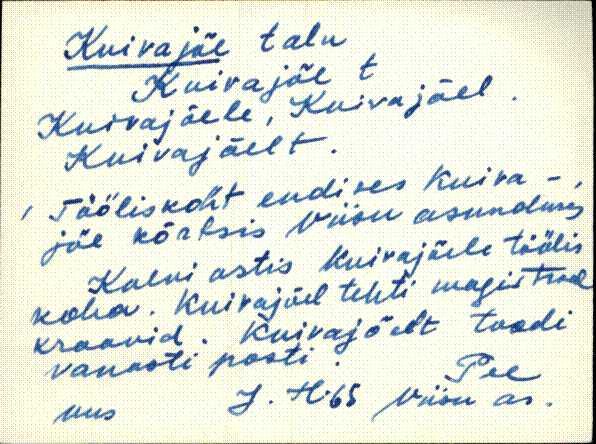 Kuivajõe talu
Kuivajõe t
Kuivajõele, Kuivajõel.
Kuivajõelt.
Tööliskoht endises Kuiva-
jõe kõrtsis Viisu asunduses,
Kalvi ostis Kuivajõele töölis
koha. Kuivajõel tehti magistraal
kraavid. Kuivajõelt toodi
vanasti posti.
Pee
vus J. H. 65 Viisu as.